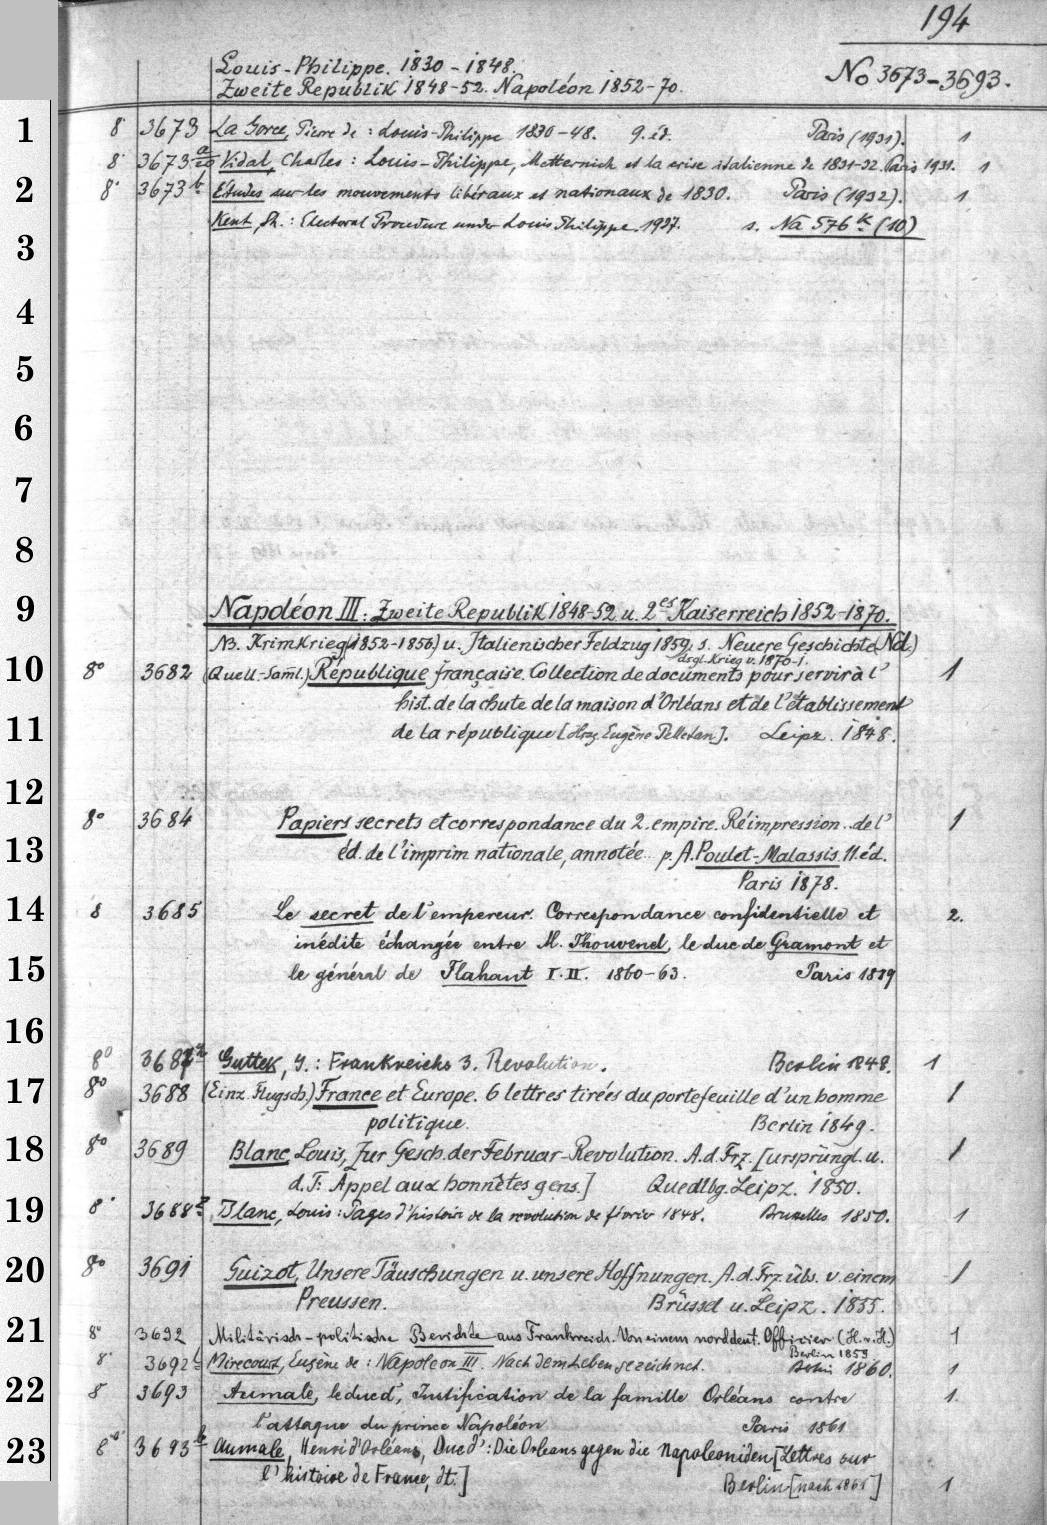 194
Louis-Philippe. 1830-1848.
Zweite Republik 1848-52. Napoléon 1852-70.
No 3673-3693.
1
8° 3673 La Gorce, Pierre de: Louis-Philippe 1830-48. 9. éd. Paris (1931). 1
8° 3673 a Vidal, Charles: Louis-Philippe, Metternich et la crise italienne de 1831-32. Paris 1931. 1
2
8° 3673 b Etudes sur les mouvements libéraux et nationaux de 1830. Paris (1932). 1
Kent, Sh.: Electoral Procedure under Louis Philippe. 1937. s. Na 576 k (10)
3
4
5
6
7
8
9
Napoléon III: Zweite Republik 1848-52 u. 2es Kaiserreich 1852-1870.
NB. Krimkrieg (1852-1856) u. Italienischer Feldzug 1859, s. Neuere Geschichte (Nd.)
dsgl. Krieg v. 1870-1.
10
8° 3682 (Quell.-Saml.) République française. Collection de documents pour servir à l' 1
hist. de la chute de la maison d'Orléans et de l'établissement
11
de la république [Hrsg. Eugène Pelletan]. Leipz. 1848.
12
8° 3684 Papiers secrets et correspondance du 2. empire. Réimpression de l' 1
13
éd. de l'imprim. nationale, annotée p. A. Poulet-Malassis. 11. éd.
Paris 1878.
14
8 3685 Le secret de l'empereur. Correspondance confidentielle et 2.
inédite échangée entre M. Thouvenel, le duc de Gramont et
15
le général de Flahaut I.II. 1860-63. Paris 1889
16
8° Guttek, J.: Frankreichs 3. Revolution. Berlin 1848. 1
17
8° 3688 (Einz. Flugsch.) France et Europe. 6 lettres tirées du portefeuille d'un homme 1
politique. Berlin 1849.
18
8° 3689 Blanc, Louis, Zur Gesch. der Februar-Revolution. A. d. Frz. [ursprüngl. u. 1
d. T: Appel aux honnêtes gens.] Quedlbg. Leipz. 1850.
19
8° 3688 Blanc, Louis: Pages d'histoire de la revolution de février 1848. Bruxelles 1850. 1
20
8° 3691 Guizot, Unsere Täuschungen u. unsere Hoffnungen. A. d. Frz. übs. v. einem 1
Preussen. Brüssel u. Leipz. 1855.
21
8° 3692 Militärisch-politische Berichte aus Frankreich. Von einem norddeut. Officier (H. v. H.) 1
Berlin 1859
8° 3692 b Mirecourt, Eugène de: Napoleon III. Nach dem Leben gezeichnet. Berlin 1860. 1
22
8° 3693 Aumale, le duc d', Justification de la famille Orléans contre 1.
l'attaque du prince Napoléon Paris 1861
23
8° 3693 b Aumale, Henri d'Orléans, Duc d': Die Orleans gegen die Napoleoniden [Lettres sur
l'histoire de France, dt.] Berlin [nach 1861] 1